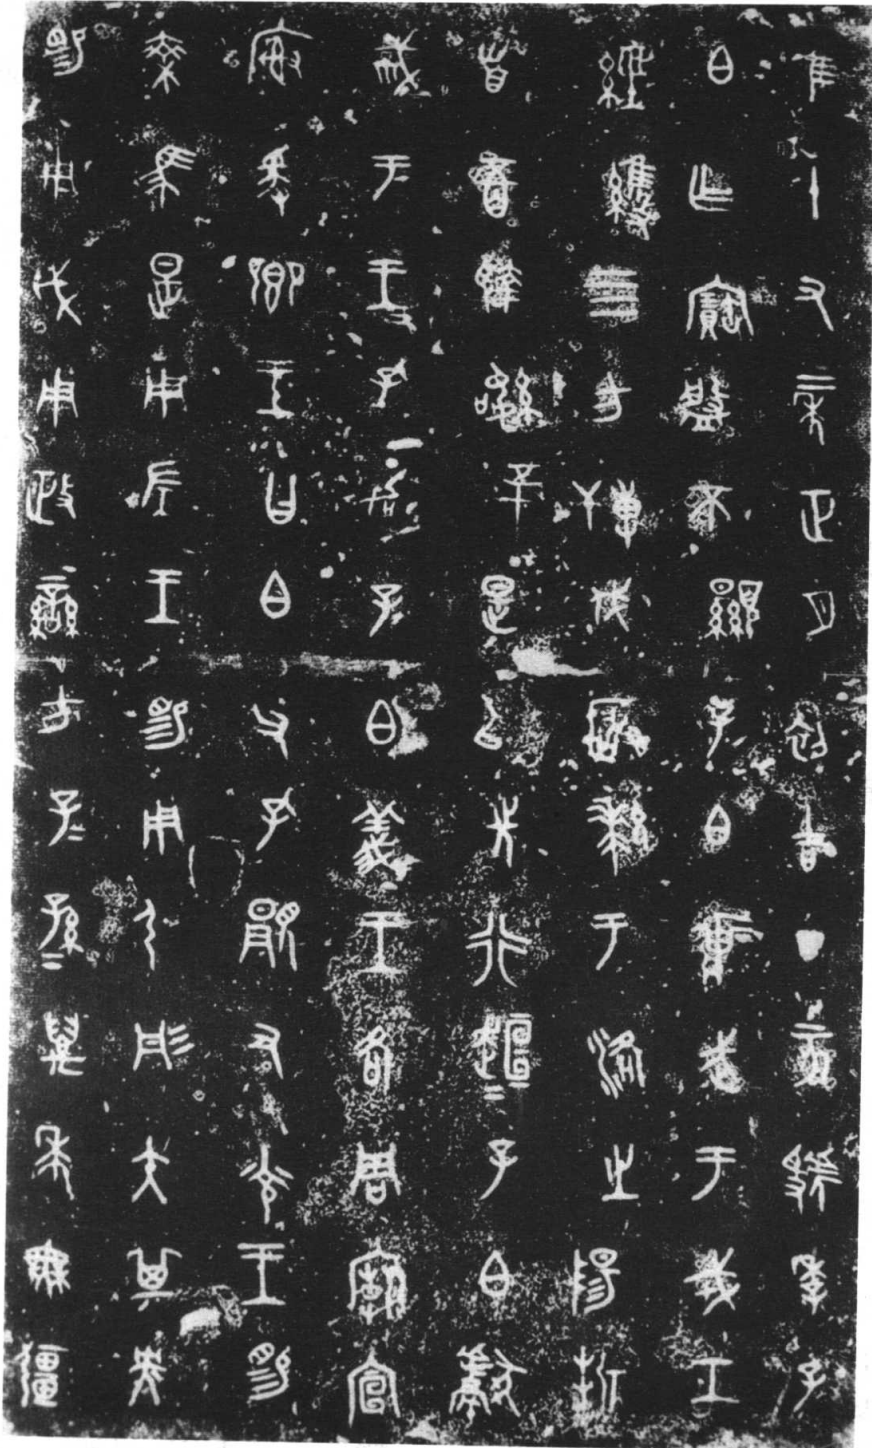 隹十又二年正月初吉丁亥虢季子
白乍寶盤不顯子白壯武于戎工
經維四方搏伐玁狁于洛之陽折
首五百執訊五十是以先行趄趄子白獻
馘于王王孔加子白義王各周廟宣
榭爰鄉王曰白父孔顯又光王賜
乘馬是用左王賜用弓彤矢其央
賜用戉用政蠻方子子孫孫萬年無疆